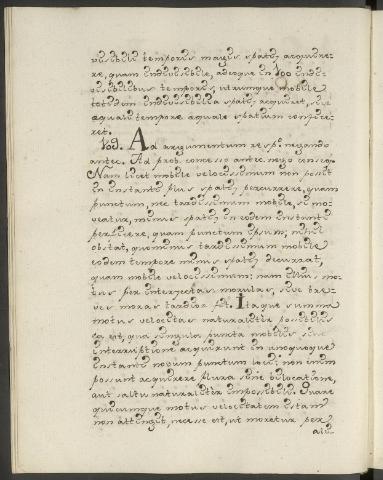 visibili temporis magis spatii acquire-
re, quam indivisibile, adeoque in 100 indi-
visibilibus temporis, utrumque mobile
totidem indivisibilia spatii acquiret, sive
æquali tempore æquale spatium conficie-
ret.
108. Ad argumentum resp: negando
antec. Ad prob. concesso antec. nego conseq.
Nam licet mobile velocissimum non possit
in instanti plus spatii percurrere, quam
punctum, nec tardissimum mobile, si mo-
veatur, minus spatii in eodem instanti
perficere, quam punctum ipsum; nihil
obstat, quominus tardissimum mobile
eodem tempore minus spatii decurrat,
quam mobile velocissimum; nam illius mo-
tus per interjectas morulas, sive bre-
ves moras tardior fit. Itaque summa
motus velocitas naturalitèr possibilis
ea est, qua singula puncta mobilis sine
interruptione acquirunt in unoquoque
instanti novum punctum loci; non enim
possunt acquirere plura sine bilocatione,
aut saltu naturalitèr impossibili. Quare
quicumque motus velocitatem istam
non attingit, necesse est, ut moretur per
ali